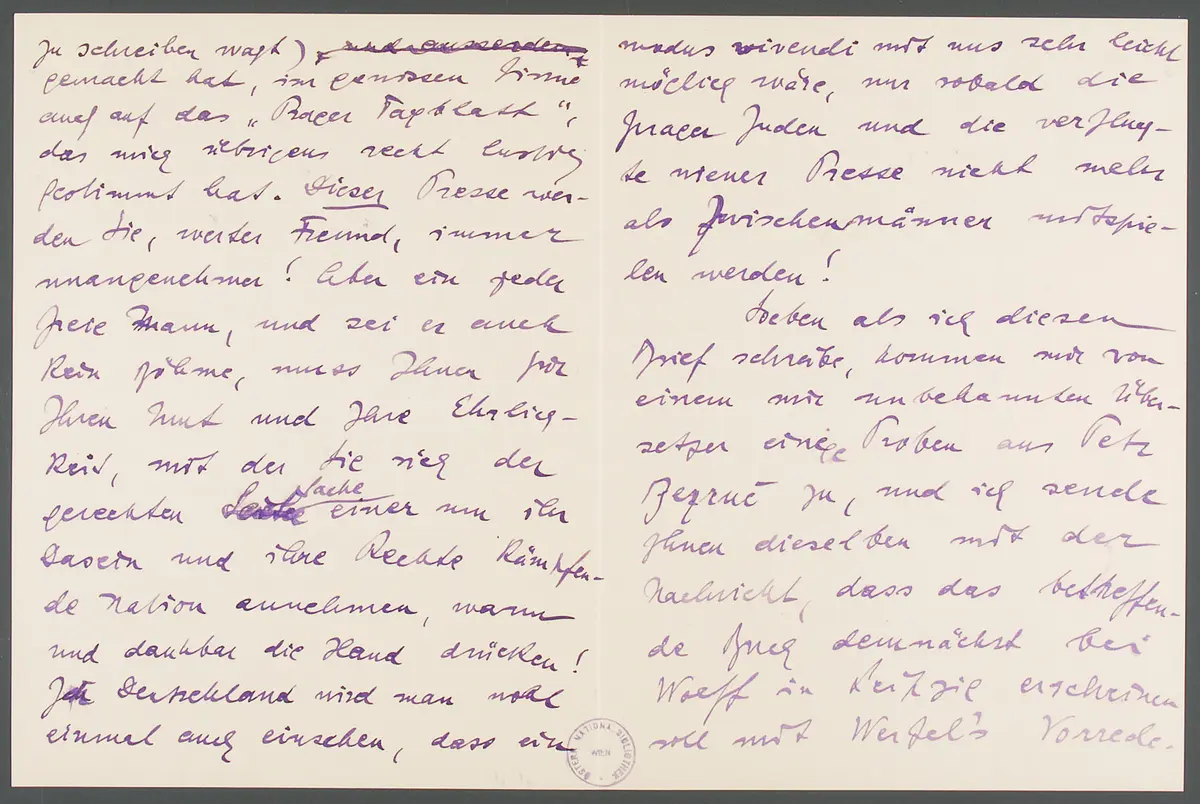 zu schreiben wagt), und ausserdem
gemacht hat, im gewissen Sinne
auch auf das „Prager Tagblatt“,
das mich übrigens recht lustig
gestimmt hat. Dieser Presse wer-
den Sie, werter Freund, immer
unangenehmer! Aber ein jeder
freie Mann, und sei er auch
kein Böhme, muss Ihnen für
Ihren Mut und Ihre Ehrlich-
keit, mit der Sie sich der
gerechten Sache einer um ihr
Dasein und ihre Rechte kämpfen-
de Nation annehmen, warm
und dankbar die Hand drücken!
In Deutschland wird man wohl
einmal auch einsehen, dass ein
modus vivendi mit uns sehr leicht
möglich wäre, nur sobald die
Prager Juden und die verfluch-
te wiener Presse nicht mehr
als Zwischenmänner mitspie-
len werden!
Soeben als ich diesen
Brief schreibe, kommen mir von
einem mir unbekannten Über-
setzer einige Proben aus Petr
Bezruč zu, und ich sende
Ihnen dieselben mit der
Nachricht, dass das betreffen-
de Buch demnächst bei
Wolff in Leipzig erscheinen
soll mit Werfel's Vorrede.
ÖSTERR. NATIONALBIBLIOTHEK
WIEN